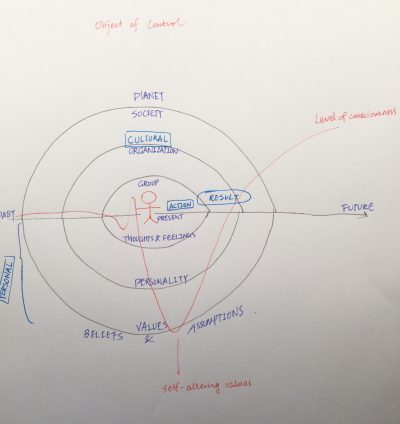 Object of control
PLANET
SOCIETY
Level of consciousness
CULTURAL
ORGANIZATION
GROUP
ACTION
RESULT
PAST
PRESENT
FUTURE
THOUGHTS & FEELINGS
PERSONAL
PERSONALITY
BELIEFS VALUES & ASSUMPTIONS
Self-altering values